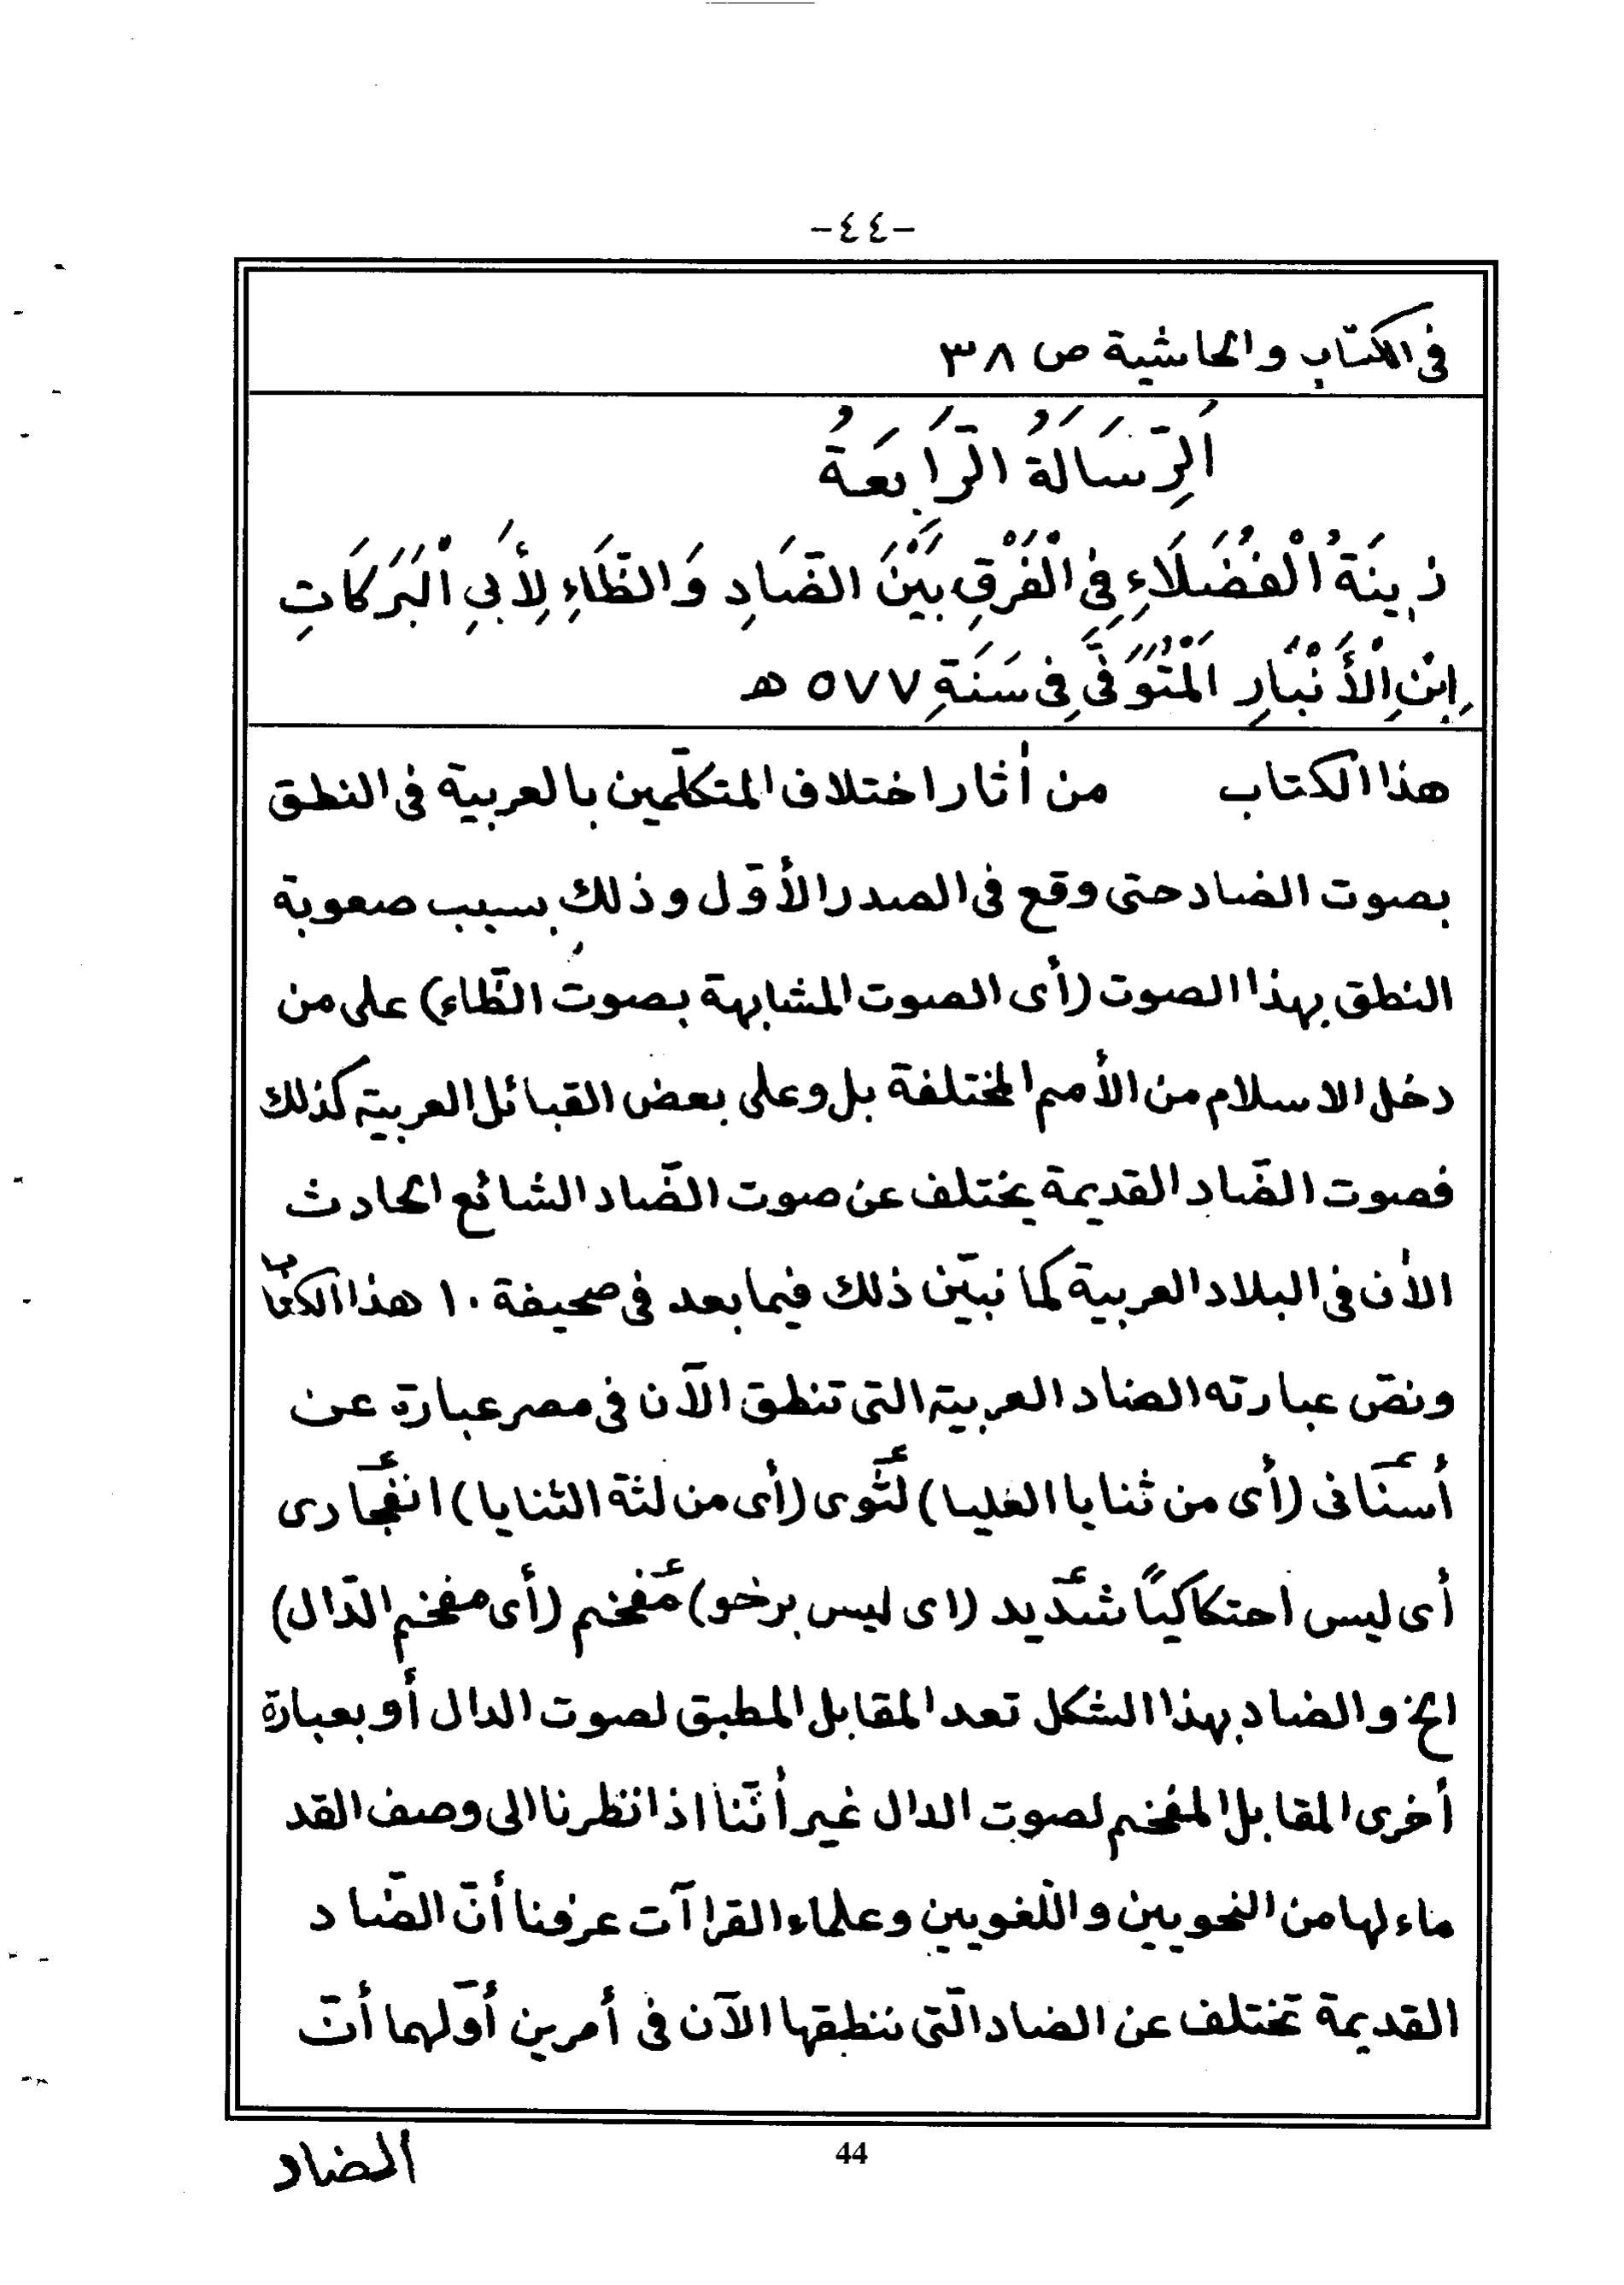 -٤٤-
فى الكتاب والحاشية ص ٣٨
اَلرِّسَالَةُ الرَّابِعَةُ
زِينَةُ الْفُضَلَاءِ فِى الْفَرْقِ بَيْنَ الضَّادِ وَالظَّاءِ لِأَبِى الْبَرَكَاتِ
اِبْنِ الْأَنْبَارِ الْمُتَوَفَّى فِى سَنَةِ ٥٧٧ ه
هذا الكتاب من أثار اختلاف المتكلّمين بالعربية فى النطق
بصوت الضاد حتى وقع فى الصدر الأوّل وذلك بسبب صعوبة
النطق بهذا الصوت (أى الصوت المشابهة بصوت الظّاء) على من
دخل الاسلام من الأمم المختلفة بل وعلى بعض القبائل العربية كذلك
فصوت الضّاد القديمة يختلف عن صوت الضّاد الشائع الحادث
الأن فى البلاد العربية كما نبيّن ذلك فيما بعد فى صحيفة ١٠ هذا الكتاب
ونصّ عبارته الضاد العربية التى تنطق الآن فى مصر عبارة عن
أسنانى (أى من ثنايا العليا) لثوى (أى من لثة الثنايا) انفجارى
أى ليس احتكاكيًّا شديد (اى ليس برخو) مفخم (أى مفخم الدّال)
الخ والضاد بهذا الشكل تعد المقابل المطبق لصوت الدال أو بعبارة
أخرى المقابل المفخم لصوت الدال غير أنّنا اذا نظرنا الى وصف القد
ماء لها من النحويين واللّغويين وعلماء القراآت عرفنا أنّ الضّاد
القديمة تختلف عن الضاد الّتى ننطقها الآن فى أمرين أوّلهما أنّ
الضاد
44